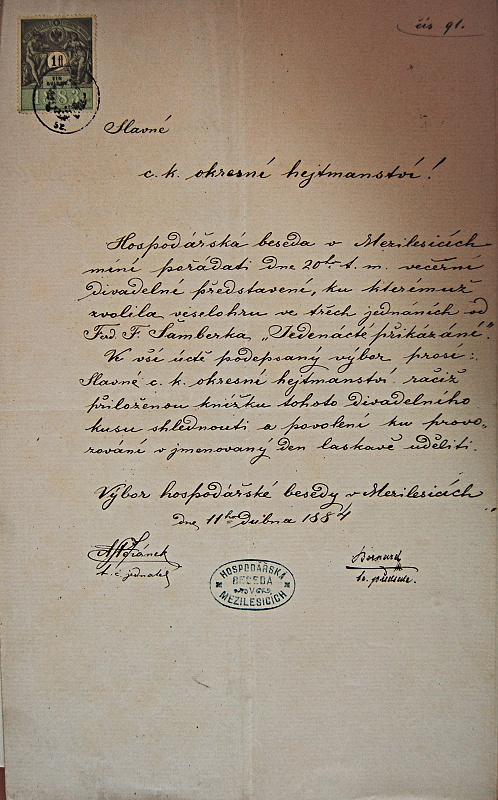 čís 91.
10
1883
Slavné
c. k. okresní hejtmanství!
Hospodářská beseda v Mezilesicích
míní pořádati dne 20ho t. m. večerní
divadelní představení, ku kterémuž
zvolila veselohru ve třech jednáních od
Ferd. F. Šamberka „Jedenácté přikázání“.
V vší úctě podepsaný výbor prosí:
Slavné c. k. okresní hejtmanství račiž
přiloženou knížku tohoto divadelního
kusu shlednouti a povolení ku provo-
zování v jmenovaný den laskavě uděliti.
Výbor hospodářské besedy v Mezilesicích
dne 11ho dubna 1884
t. č. jednatel
HOSPODÁŘSKÁ
BESEDA
V
MEZILESICÍCH